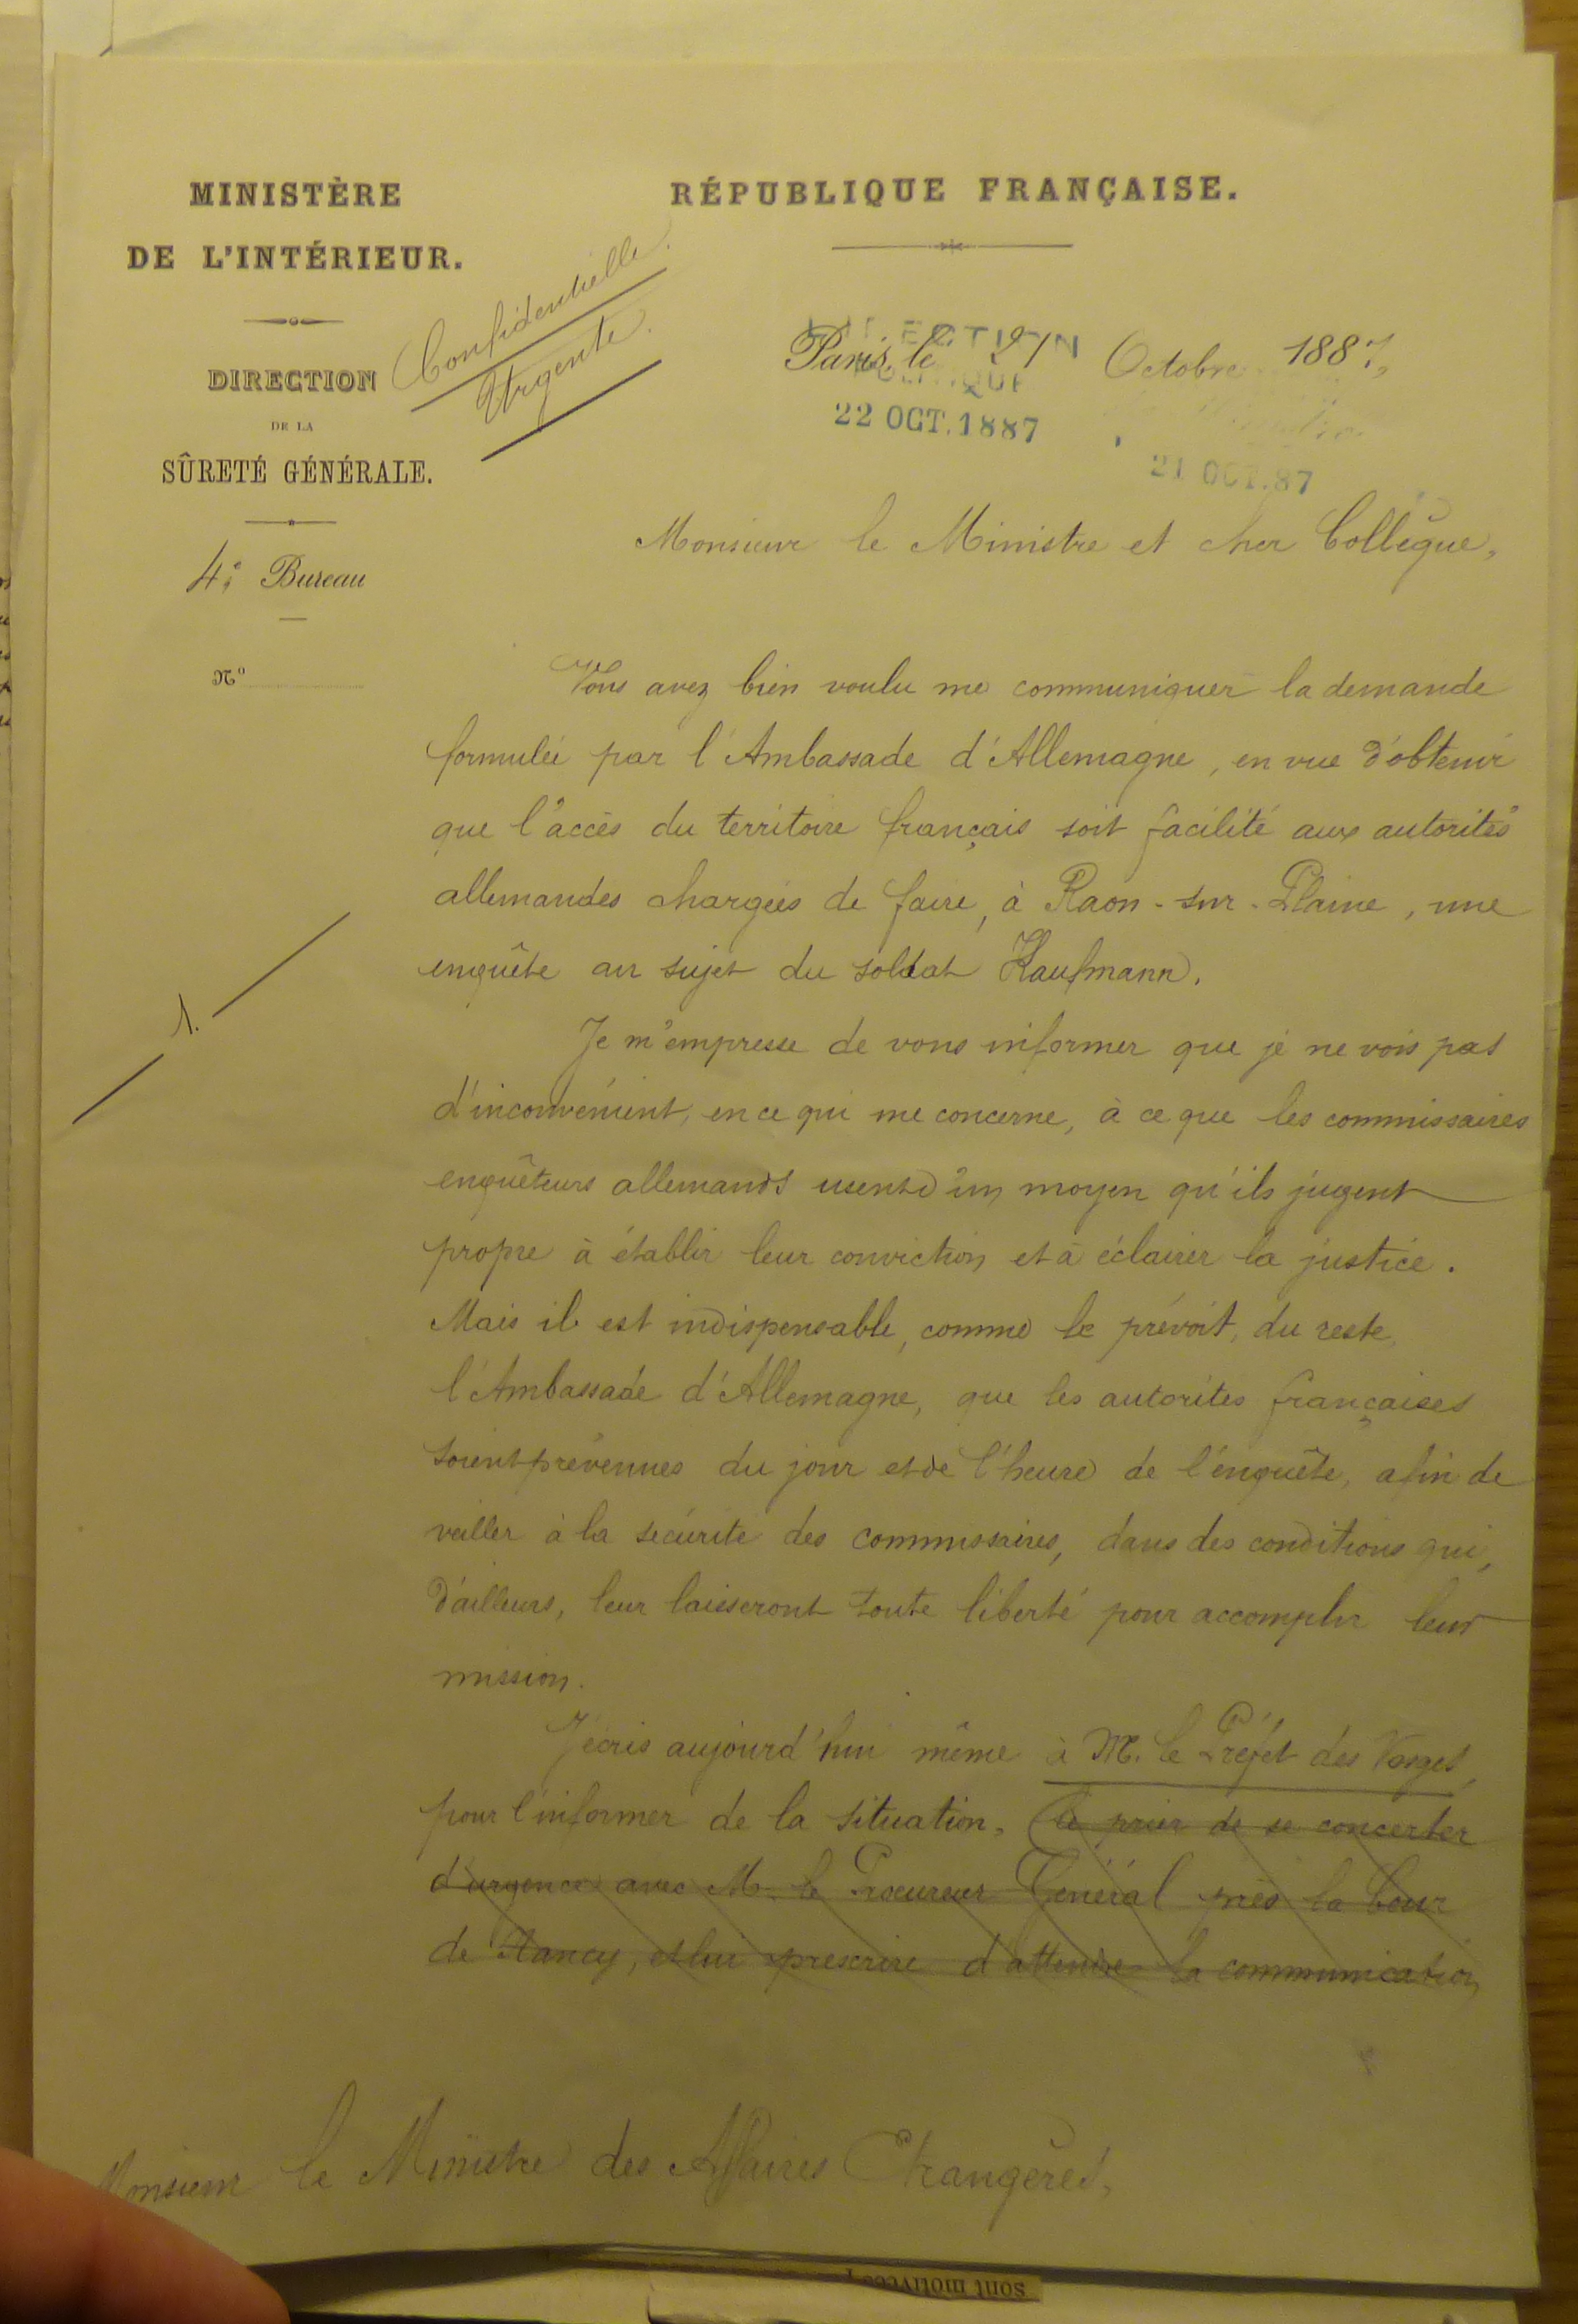 MINISTÈRE
DE L'INTÉRIEUR.
DIRECTION
DE LA
SÛRETÉ GÉNÉRALE.
4e Bureau
No
Confidentielle.
Urgente.
RÉPUBLIQUE FRANÇAISE.
Paris, le 21 Octobre 1887,
22 OCT. 1887
21 OCT. 87
Monsieur le Ministre et cher Collègue,
Vous avez bien voulu me communiquer la demande
formulée par l'Ambassade d'Allemagne, en vue d'obtenir
que l'accès du territoire français soit facilité aux autorités
allemandes chargées de faire, à Raon-sur-Plaine, une
enquête au sujet du soldat Kaufmann.
1.
Je m'empresse de vous informer que je ne vois pas
d'inconvénient, en ce qui me concerne, à ce que les commissaires
enquêteurs allemands usent d'un moyen qu'ils jugent
propre à établir leur conviction et à éclairer la justice.
Mais il est indispensable, comme le prévoit, du reste,
l'Ambassade d'Allemagne, que les autorités françaises
soient prévenues du jour et de l'heure de l'enquête, afin de
veiller à la sécurité des commissaires, dans des conditions qui,
d'ailleurs, leur laisseront toute liberté pour accomplir leur
mission.
J'écris aujourd'hui même à M. le Préfet des Vosges,
pour l'informer de la situation, le prier de se concerter
d'urgence avec M. le Procureur Général près la Cour
de Nancy, et lui prescrire d'attendre la communication
Monsieur le Ministre des Affaires Etrangères,
sont motivées